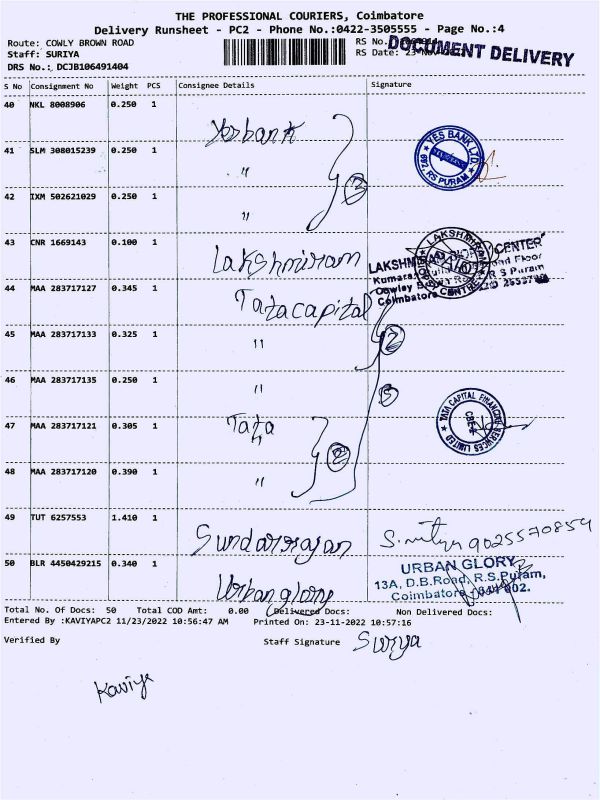 THE PROFESSIONAL COURIERS, Coimbatore
Delivery Runsheet - PC2 - Phone No.:0422-3505555 - Page No.:4
Route: COWLY BROWN ROAD
RS No.
DOCUMENT DELIVERY
Staff: SURIYA
RS Date: 23-Nov
DRS No.: DCJB106491404
S No Consignment No Weight PCS Consignee Details Signature
40 NKL 8008906 0.250 1
Yesbank
41 SLM 308015239 0.250 1
"
YES BANK LTD. ★ 692, RS PURAM ★
3
42 IXM 502621029 0.250 1
"
43 CNR 1669143 0.100 1
Lakshmiram
44 MAA 283717127 0.345 1
Tatacapital
Coimbatore
45 MAA 283717133 0.325 1
"
2
46 MAA 283717135 0.250 1
"
5
47 MAA 283717121 0.305 1
Tata
"
2
TATA CAPITAL FINANCIAL SERVICES LIMITED ★
CBE-4
48 MAA 283717120 0.390 1
"
49 TUT 6257553 1.410 1
Sundarrajan
9025570854
50 BLR 4450429215 0.340 1
Urbanglory
URBAN GLORY
13A, D.B.Road, R.S.Puram,
Coimbatore - 641 002.
Total No. Of Docs: 50 Total COD Amt: 0.00 Delivered Docs: Non Delivered Docs:
Entered By :KAVIYAPC2 11/23/2022 10:56:47 AM Printed On: 23-11-2022 10:57:16
Verified By Staff Signature Surya
Kaviya